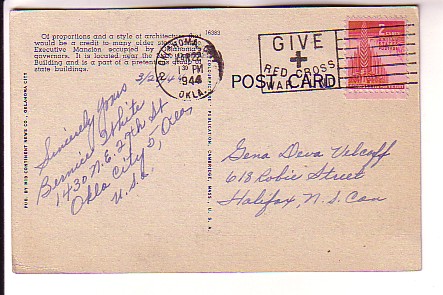 Of proportions and a style of architecture
would be a credit to many older
Executive Mansion occupied by Oklahoma's
governors. It is located near the
Building and is part of a pretentious group of
state buildings.
16383
OKLAHOMA
PM
1944
OKLA.
GIVE
+
RED CROSS
WAR
2 CENTS 2
POST CARD
3/22/44
Sincerely Yours
Bernice White
1430 N.E. 29th St
Okla City 5, Okla
U.S.A.
Gena Deva Velcoff
618 Robie Street
Halifax, N.S. Can
PUB. BY MID CONTINENT NEWS CO., OKLAHOMA CITY
PUBLICATION, CAMBRIDGE, MASS., U. S. A.